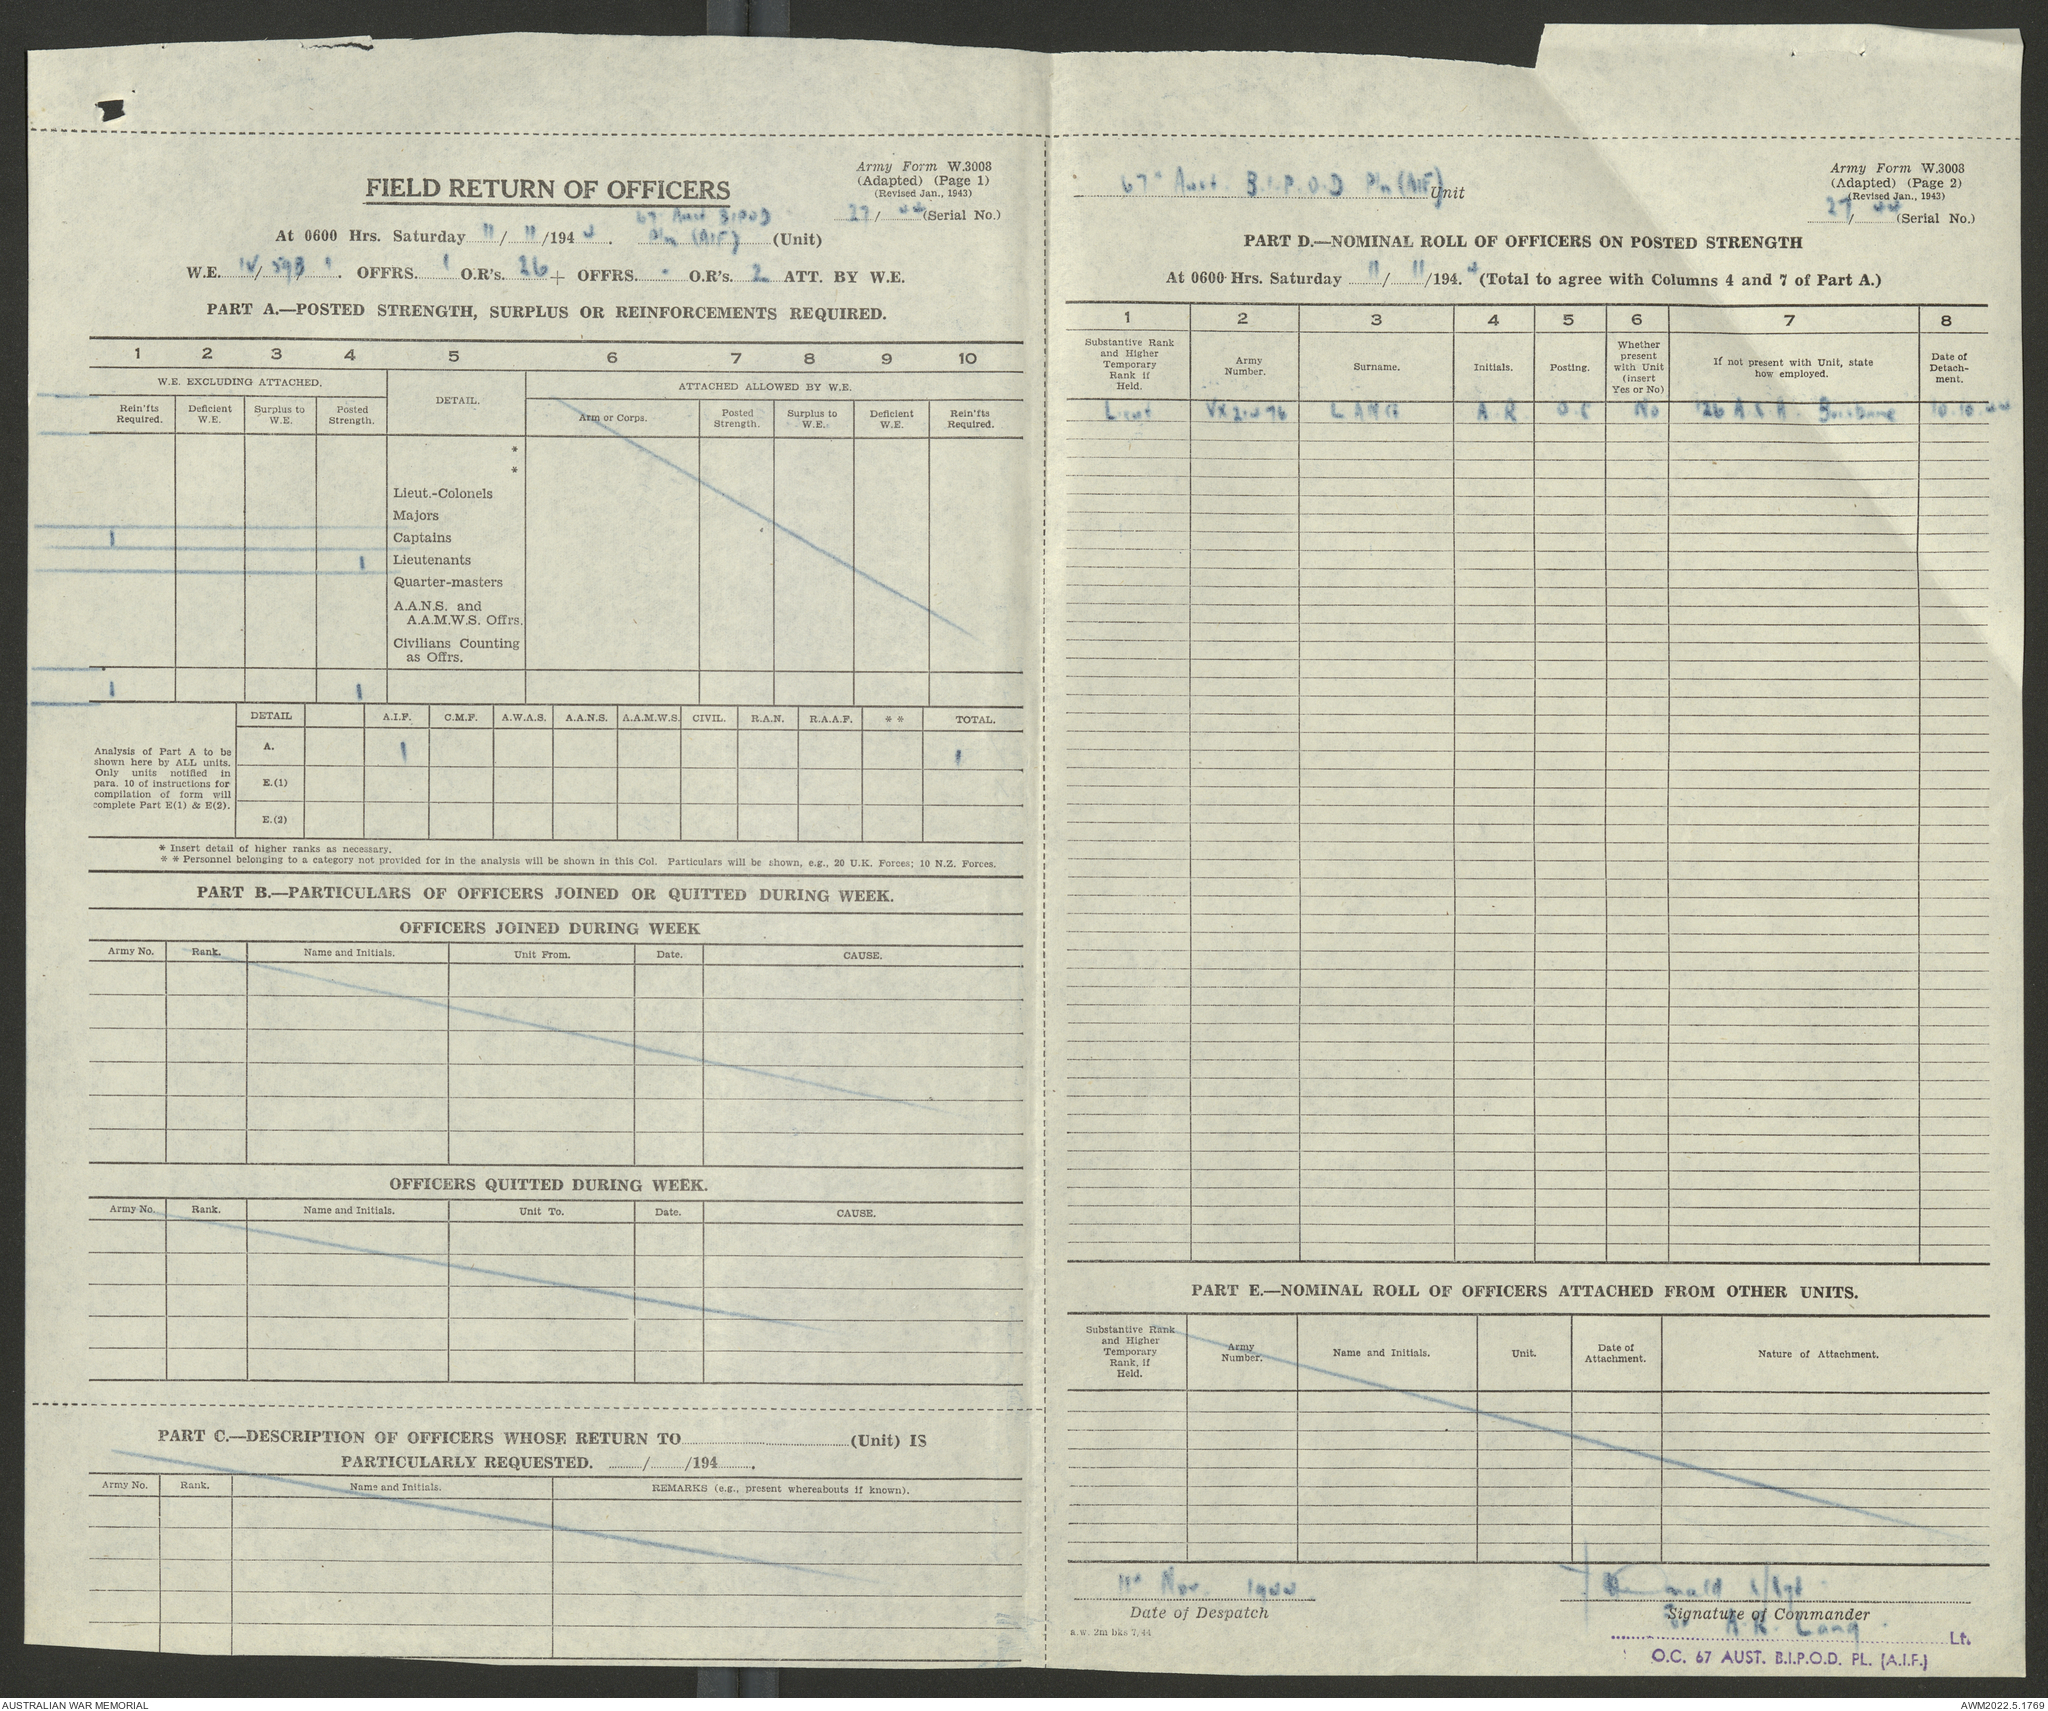 Army Form W.3008
(Adapted) (Page 1)
(Revised Jan., 1943)
FIELD RETURN OF OFFICERS
27/44 (Serial No.)
At 0600 Hrs. Saturday 11/11/1944. 67 Aust BIPOD Pln (AIF) (Unit)
W.E. IV/59B/1. OFFRS. 1 O.R's. 26 + OFFRS. - O.R's. 2 ATT. BY W.E.
PART A.—POSTED STRENGTH, SURPLUS OR REINFORCEMENTS REQUIRED.
1 2 3 4 5 6 7 8 9 10
W.E. EXCLUDING ATTACHED. DETAIL. ATTACHED ALLOWED BY W.E.
Rein'fts Required. Deficient W.E. Surplus to W.E. Posted Strength. Arm or Corps. Posted Strength. Surplus to W.E. Deficient W.E. Rein'fts Required.
*
*
Lieut.-Colonels
Majors
1 Captains
1 Lieutenants
Quarter-masters
A.A.N.S. and
A.A.M.W.S. Offrs.
Civilians Counting
as Offrs.
1 1
DETAIL A.I.F. C.M.F. A.W.A.S. A.A.N.S. A.A.M.W.S. CIVIL. R.A.N. R.A.A.F. * * TOTAL.
Analysis of Part A to be
shown here by ALL units.
Only units notified in
para. 10 of instructions for
compilation of form will
complete Part E(1) & E(2).
A. 1 1
E.(1)
E.(2)
* Insert detail of higher ranks as necessary.
* * Personnel belonging to a category not provided for in the analysis will be shown in this Col. Particulars will be shown, e.g., 20 U.K. Forces; 10 N.Z. Forces.
PART B.—PARTICULARS OF OFFICERS JOINED OR QUITTED DURING WEEK.
OFFICERS JOINED DURING WEEK
Army No. Rank. Name and Initials. Unit From. Date. CAUSE.
OFFICERS QUITTED DURING WEEK.
Army No. Rank. Name and Initials. Unit To. Date. CAUSE.
PART C.—DESCRIPTION OF OFFICERS WHOSE RETURN TO (Unit) IS
PARTICULARLY REQUESTED. / /194 .
Army No. Rank. Name and Initials. REMARKS (e.g., present whereabouts if known).
Army Form W.3008
(Adapted) (Page 2)
(Revised Jan., 1943)
67 Aust. B.I.P.O.D Pln (AIF) Unit
27/44 (Serial No.)
PART D.—NOMINAL ROLL OF OFFICERS ON POSTED STRENGTH
At 0600 Hrs. Saturday 11/11/1944. (Total to agree with Columns 4 and 7 of Part A.)
1 2 3 4 5 6 7 8
Substantive Rank and Higher Temporary Rank if Held. Army Number. Surname. Initials. Posting. Whether present with Unit (insert Yes or No) If not present with Unit, state how employed. Date of Detachment.
Lieut LANG A.R O.C No Brisbane 10.10.44
PART E.—NOMINAL ROLL OF OFFICERS ATTACHED FROM OTHER UNITS.
Substantive Rank and Higher Temporary Rank, if Held. Army Number. Name and Initials. Unit. Date of Attachment. Nature of Attachment.
11 Nov. 1944
Date of Despatch
Signature of Commander
a.w. 2m bks 7/44
A.R. Lang Lt.
O.C. 67 AUST. B.I.P.O.D. PL. (A.I.F.)
AUSTRALIAN WAR MEMORIAL
AWM2022.5.1769